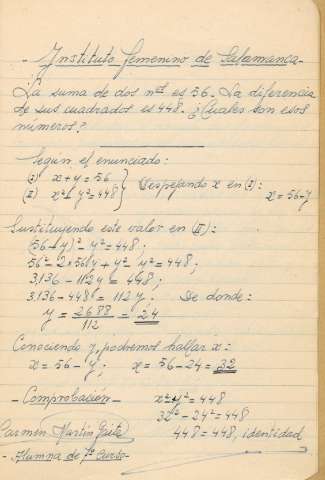 - Instituto femenino de Salamanca -
La suma de dos nos es 56. La diferencia
de sus cuadrados es 448. ¿Cuales son esos
números?
Según el enunciado:
(I) x+y=56
(II) x²-y²=448 } Despejando x en (I):
x=56-y
Sustituyendo este valor en (II):
(56-y)²-y²=448;
56²-2×56y+y²-y²=448;
3.136-112y=448;
3.136-448=112y. De donde:
y = 2688/112 = 24
Conociendo y, podremos hallar x:
x=56-y; x=56-24=32
- Comprobación - x²-y²=448
32²-24²=448
Carmen Martín Gaite 448=448, identidad
- Alumna de 7º Curso -